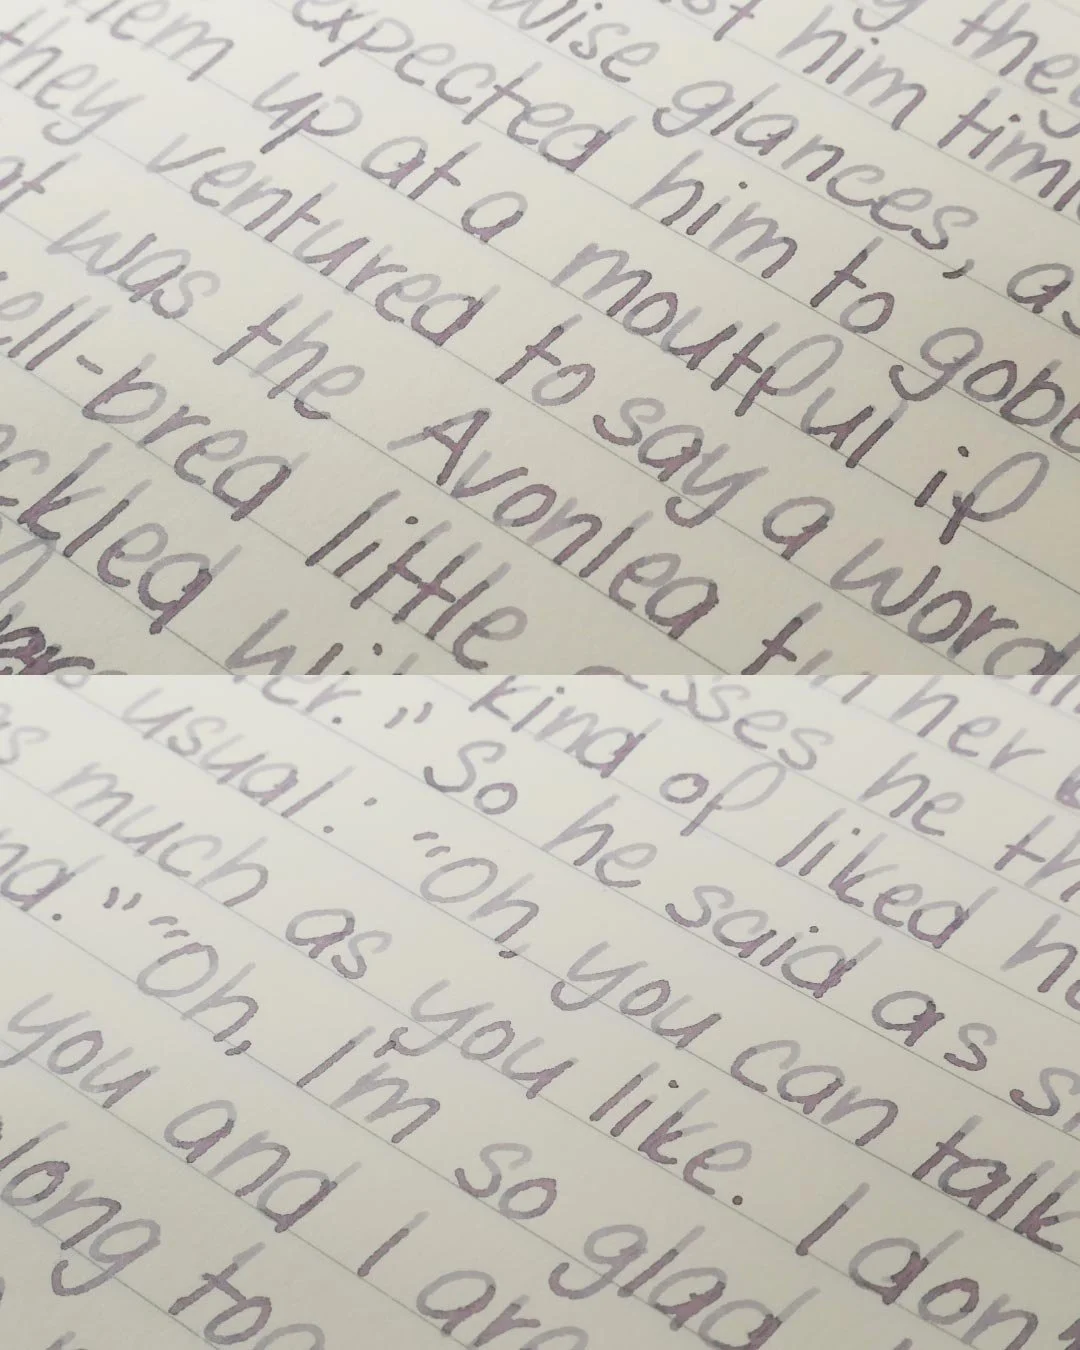 they
him
wise glances, as
expected him to
up at a mouthful if
they ventured to say a word
was the Avonlea
-bred little
her
he
kind of liked
So he said as
usual: "Oh, you can talk
as much as you like. I don't
" "Oh, I'm so glad
you and I are
long